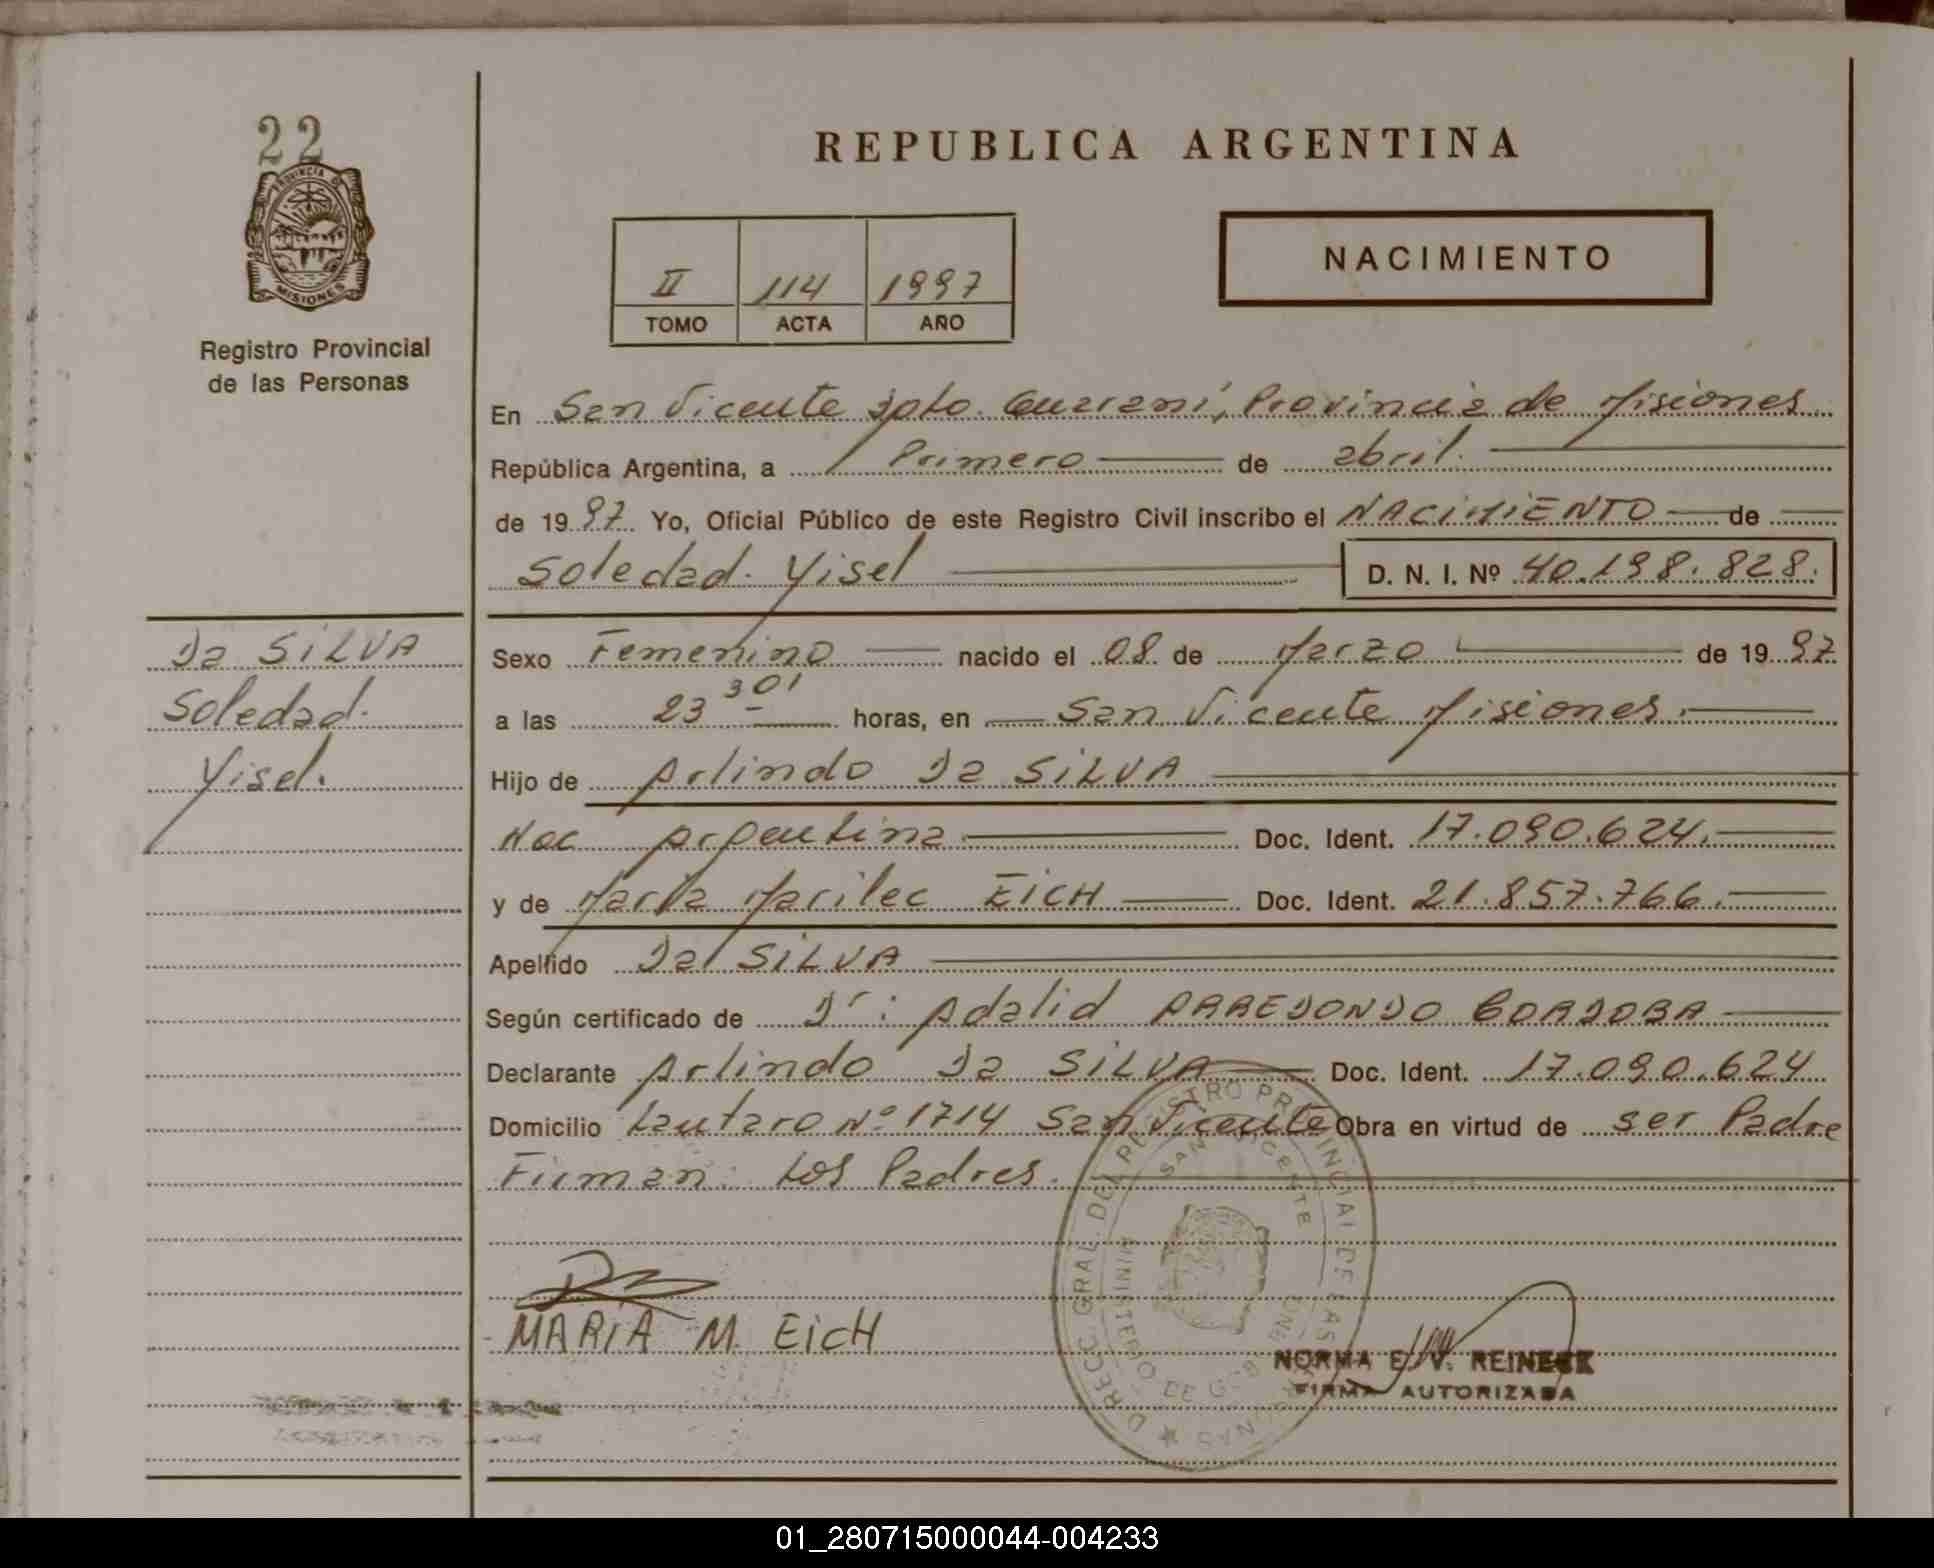 22
PROVINCIA DE
MISIONES
Registro Provincial
de las Personas
REPUBLICA ARGENTINA
II 114 1997
TOMO ACTA AÑO
NACIMIENTO
En San Vicente Dpto. Guaraní, Provincia de Misiones
República Argentina, a Primero de abril.
de 1997 Yo, Oficial Público de este Registro Civil inscribo el NACIMIENTO de
Soledad Yisel D. N. I. Nº 40.198.828.
Da SILVA
Soledad.
Yisel.
Sexo Femenino nacido el 08 de Marzo de 1997
a las 23 30' horas, en San Vicente Misiones.
Hijo de Arlindo Da SILVA
Nac Argentina Doc. Ident. 17.090.624.
y de María Marilec EICH Doc. Ident. 21.857.766.
Apellido Da SILVA
Según certificado de Dr: Adalid ARREDONDO CORDOBA
Declarante Arlindo Da SILVA Doc. Ident. 17.090.624
Domicilio Lautaro Nº 1714 San Vicente Obra en virtud de ser Padre
Firman: Los Padres.
MARIA M. EICH
DIRECC. GRAL. DEL REGISTRO PROVINCIAL DE LAS PERSONAS
SAN VICENTE
MINISTERIO DE GOBIERNO
NORMA E. V. REINECK
FIRMA AUTORIZADA
01_280715000044-004233